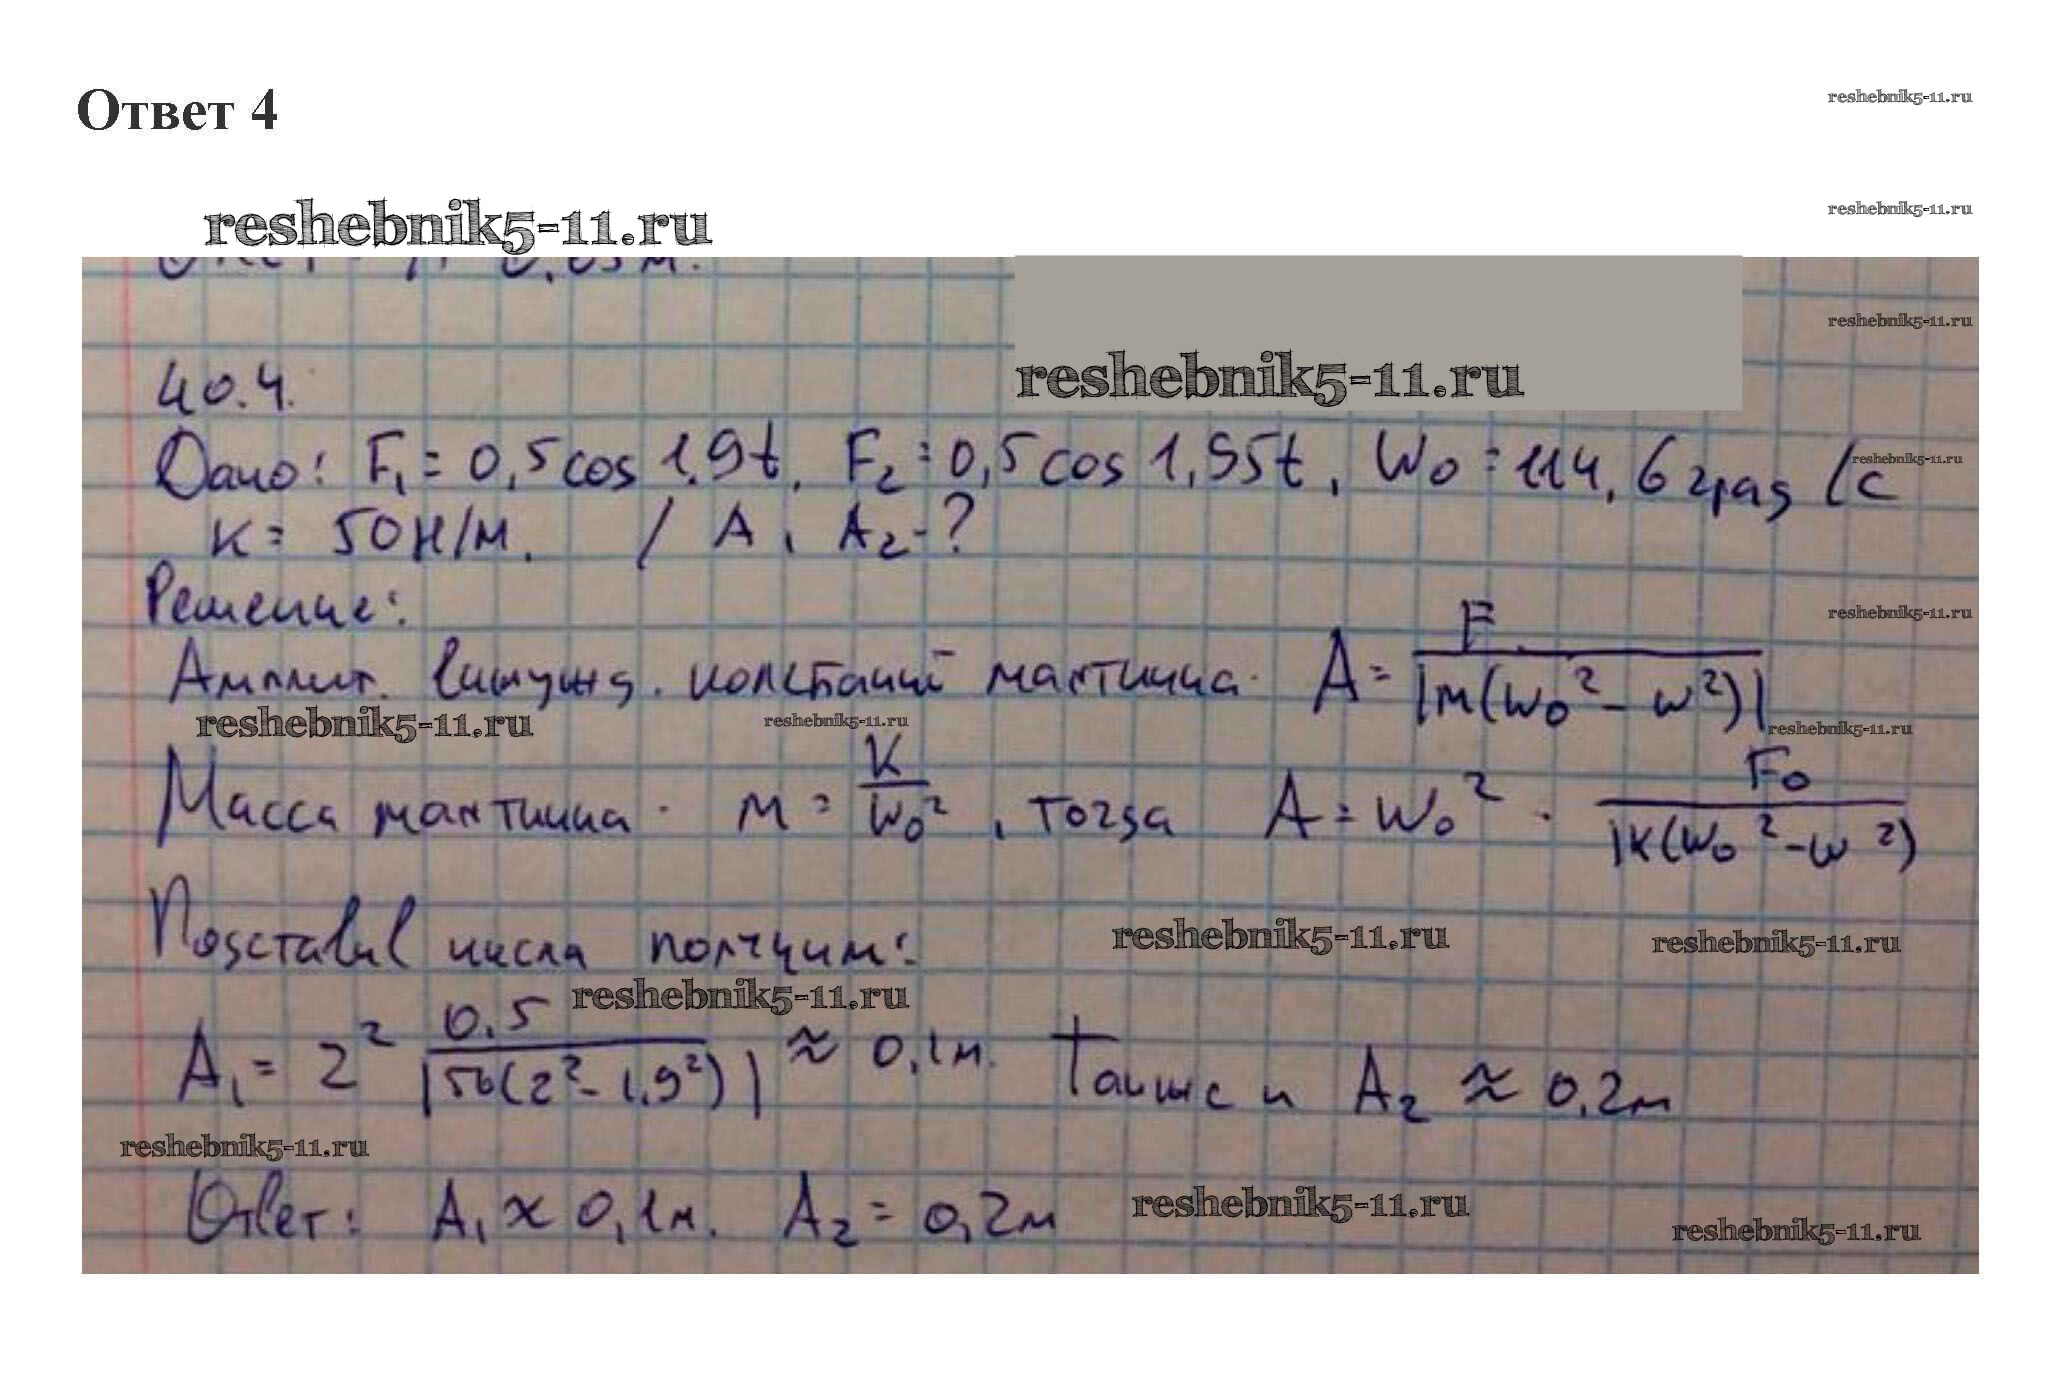 Ответ 4
reshebnik5-11.ru
reshebnik5-11.ru
reshebnik5-11.ru
reshebnik5-11.ru
reshebnik5-11.ru
40.4.
Дано: F₁ = 0,5 cos 1,9t, F₂ = 0,5 cos 1,95t, W₀ = 114,6 град/с
reshebnik5-11.ru
K = 50 Н/м. / A, A₂ - ?
Решение:
reshebnik5-11.ru
Амплит. вынужд. колебаний маятника. A = F / |м(w₀² - w²)|
reshebnik5-11.ru reshebnik5-11.ru reshebnik5-11.ru
Масса маятника. м = K / W₀², тогда A = W₀² · F₀ / |K(W₀² - w²)
Подставив числа получим:
reshebnik5-11.ru reshebnik5-11.ru
reshebnik5-11.ru
A₁ = 2² 0,5 / |50(2² - 1,9²)| ≈ 0,1м. Также и A₂ ≈ 0,2м
reshebnik5-11.ru
Ответ: A₁ ≈ 0,1м. A₂ = 0,2м
reshebnik5-11.ru
reshebnik5-11.ru